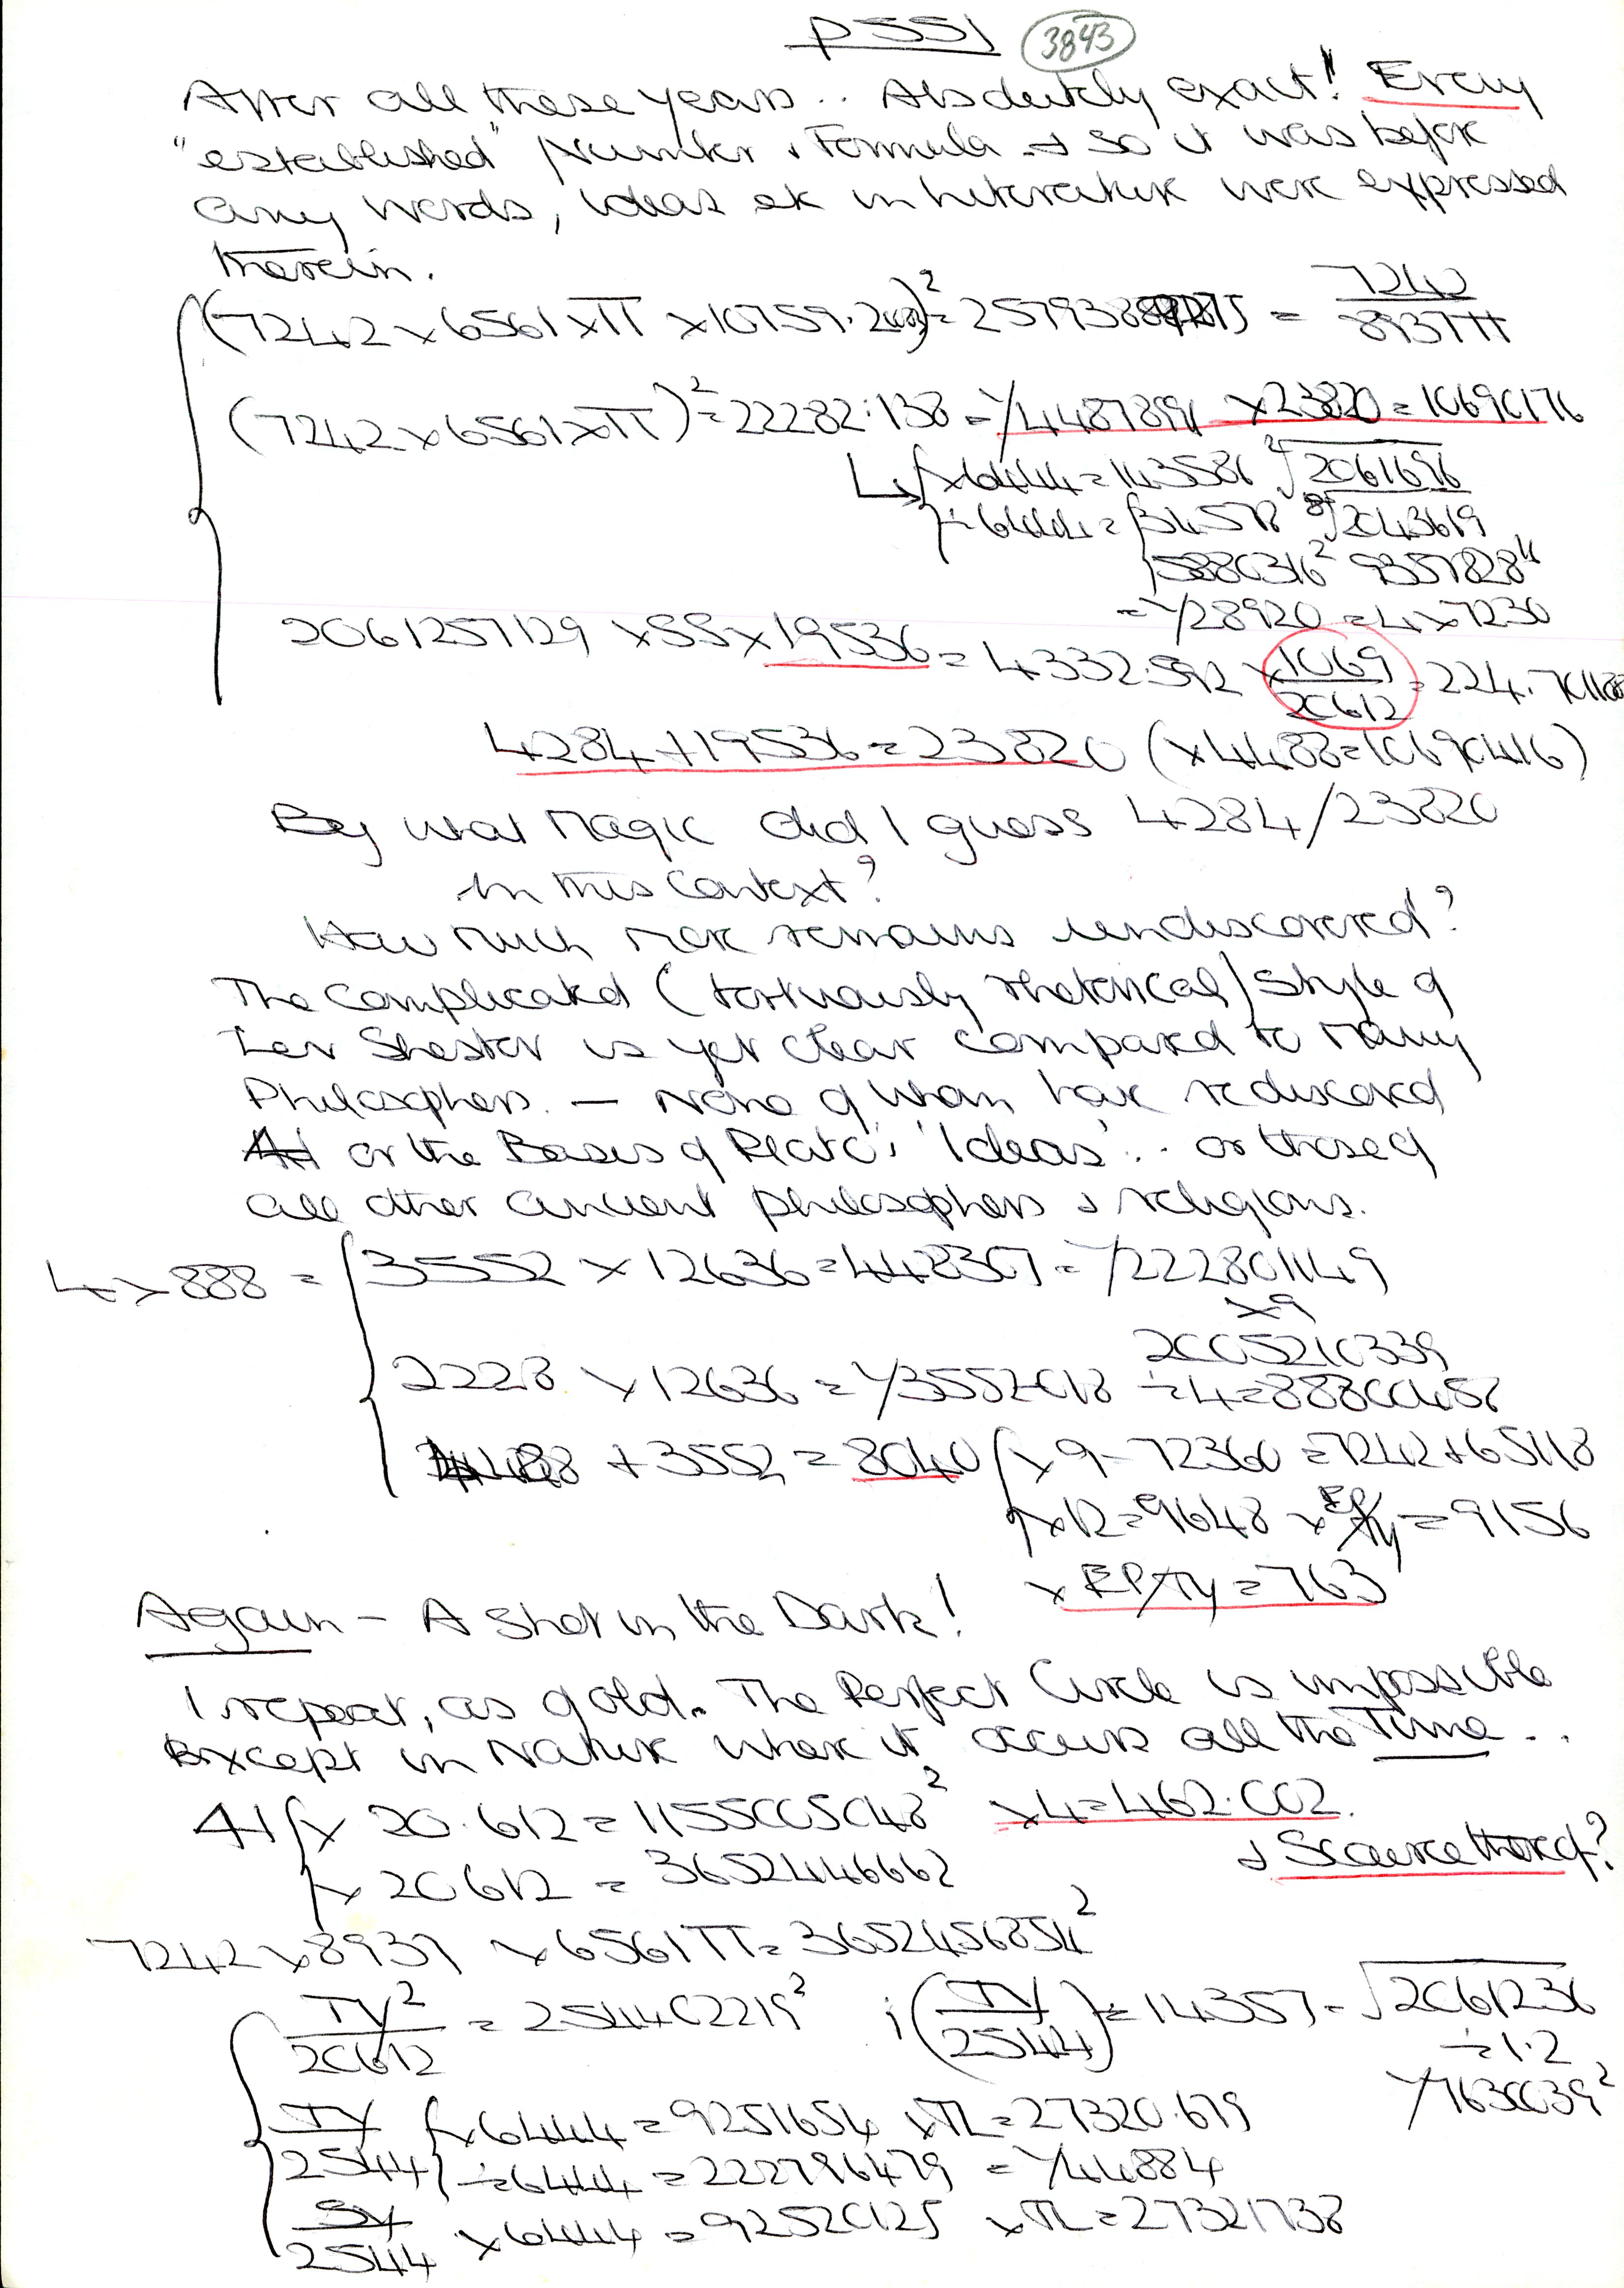 p551 3843
After all these years.. Absolutely exact! Every
"established" Number & Formula → So it was before
any words, ideas etc in literature were expressed
therein.
(7242 × 6561 × π × 10759.2 )² = = 7242 / 8937π
(7242 × 6561 × π)² = 22282.138 = 1/44878991 × 23820 = 10690176
× 6444 = 143586 2061696
÷ 6444 = 34578 2043619
5880316² 9357828"
= 1/28920 = 4 × 7230
2061257129 × SS × 19536 = 4332.592 × 1069/20612 = 224.701108
4284 + 19536 = 23820 (× 4488 = 10690416)
By what Magic did I guess 4284/23820
in this Context?
How Much More remains undiscovered?
The Complicated (tortuously rhetorical) Style of
Lev Shestov is yet clear compared to Many
Philosophers. — None of whom have rediscovered
or the Bases of Plato's 'Ideas'.. or those of
all other ancient philosophers & religions.
4 × 888 = 3552 × 12636 = 448307 = 1/222801149
× 9
2005210339
2228 × 12636 = 1/3552018 ÷ 4 = 88800458
4488 + 3552 = 8040 × 9 = 72360 = 7242 + 65118
× 12 = 9648 × EP/TY = 9156
× EP/TY = 763
Again — A Shot in the Dark!
I repeat, as of old. The Perfect Circle is impossible
Except in Nature where it occurs all the Time ..
41 × 20.612 = 1155005048² × 4 = 462.002.
× 20612 = 3652446662
& Source thereof?
7242 × 8937 × 6561π = 3652456854²
TY²/20612 = 254402219² ; (TY/2544) = 14357 = √2061236
÷ 1.2
1/7630039²
TY/2544 × 6444 = 9251654 × TL = 27320.679
÷ 6444 = 222796479 = 1/44884
SY/2544 × 6444 = 92520125 × TL = 27321738